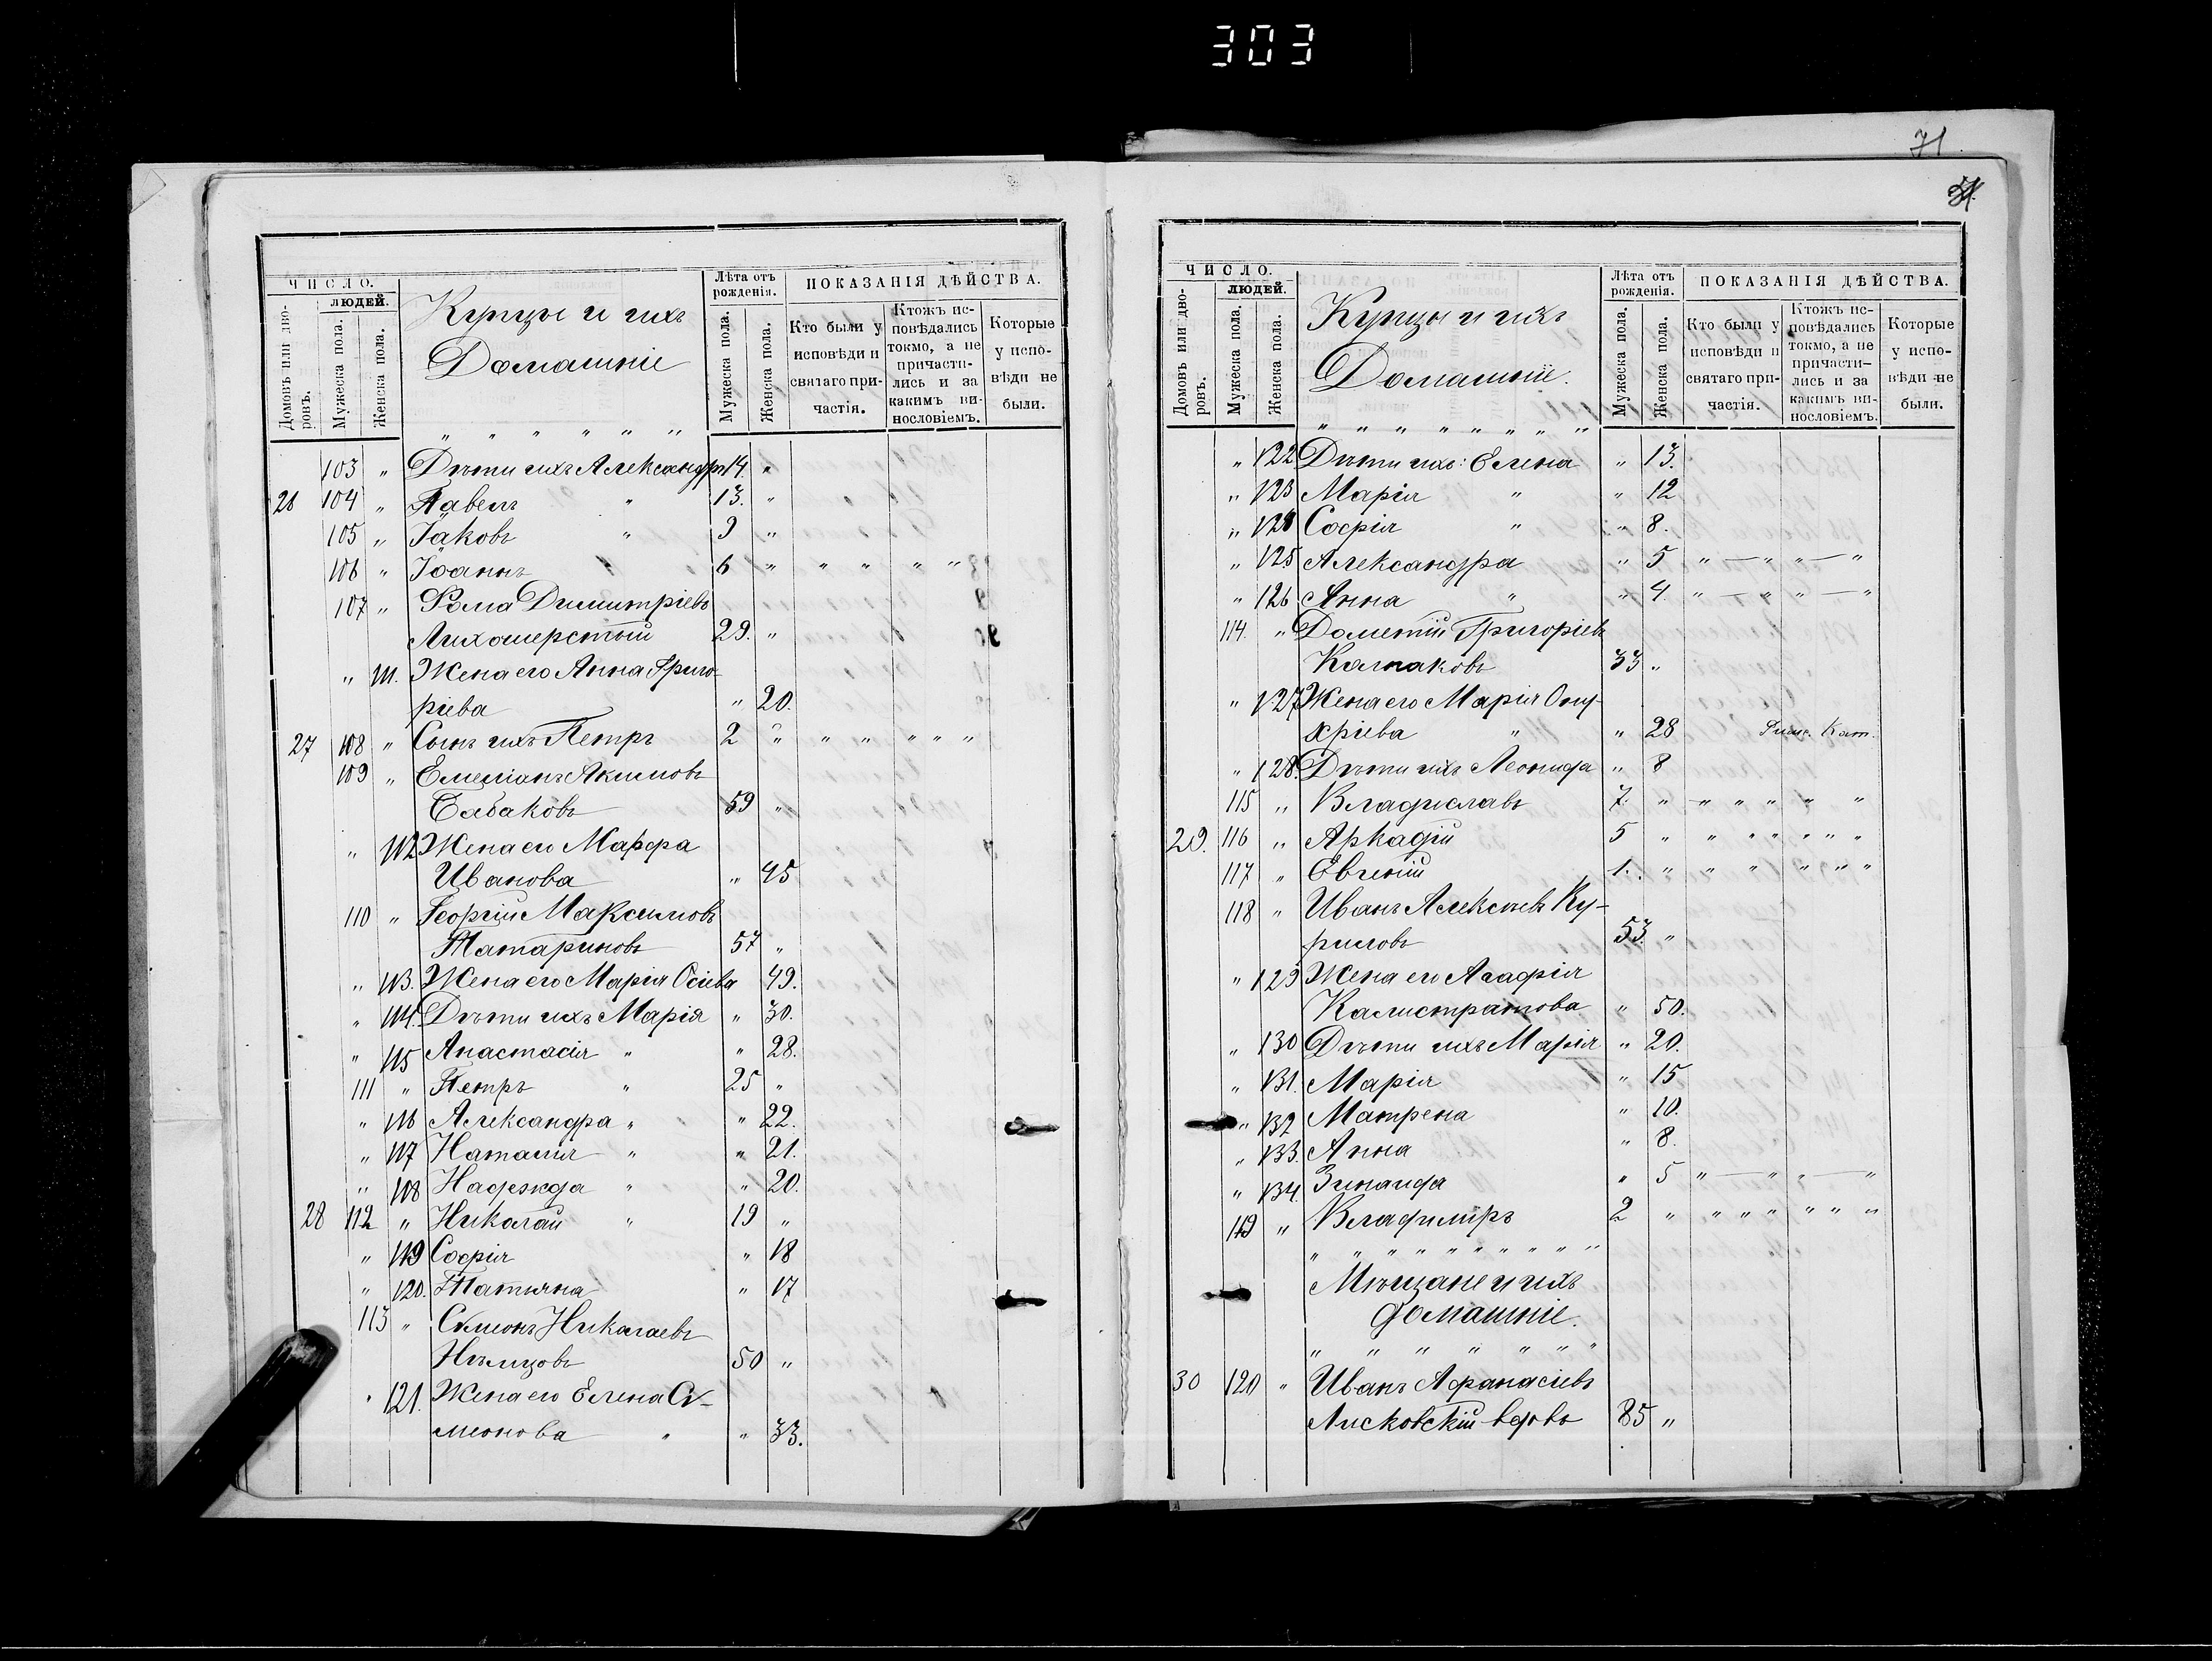 303
71
ЧИСЛО.
людей.
Домовъ или дворовъ.
Мужеска пола.
Женска пола.
Купцы и ихъ
Домашніе
Лѣта отъ
рожденія.
Мужеска пола.
Женска пола.
ПОКАЗАНІЯ ДѢЙСТВА.
Кто были у
исповѣди и
святаго при-
частія.
Ктожъ ис-
повѣдались
токмо, а не
причасти-
лись и за
какимъ ви-
нословіемъ.
Которые
у испо-
вѣди не
были.
" " " " " "
103 " Дѣти ихъ Александръ 14. "
26 104 " Павелъ " 13. "
105 " Іаковъ " 9 "
106 " Іоаннъ " 6 " " " " "
107 " Ѳома Димитріевъ
Лихошерстый 29. "
" 111. Жена его Анна Григо-
ріева " 20.
27 108 " Сынъ ихъ Петръ 2 " " " " " "
109 " Емеліанъ Акимовъ
59 "
" 112 Жена его Марфа
Иванова " 45
110 " Георгій Максимовъ
Татариновъ 57 "
" 113. Жена его Марія Осіева 49.
" 114. Дѣти ихъ Марія " 30.
" 115 Анастасія " " 28.
111 " Петръ " 25 "
" 116 Александра " " 22.
" 117 Наталія " " 21.
" 118 Надежда " " 20.
28 112 " Николай " 19 "
" 119 Софія " 18
" 120. Татіяна " 17
113 " Симеонъ Николаевъ
Нѣмцовъ 50 "
" 121. Жена его Елена Си-
меонова " " 33.
ЧИСЛО.
людей.
Домовъ или дворовъ.
Мужеска пола.
Женска пола.
Купцы и ихъ
Домашніе.
Лѣта отъ
рожденія.
Мужеска пола.
Женска пола.
ПОКАЗАНІЯ ДѢЙСТВА.
Кто были у
исповѣди и
святаго при-
частія.
Ктожъ ис-
повѣдались
токмо, а не
причасти-
лись и за
какимъ ви-
нословіемъ.
Которые
у испо-
вѣди не
были.
" " " " " " " "
" 122 Дѣти ихъ: Елена " 13.
" 123 Марія " " 12
" 124 Софія " " 8.
" 125 Александра " 5 " — " " — "
" 126 Анна " " 4. " — " " — "
114. " Дометій Григоріевъ
Колпаковъ 33 "
" 127 Жена его Марія Онуфріева " " 28 Римс. Кат.
" 128. Дѣти ихъ Леонида " 8
115 " Владиславъ 7. " " " " " "
29. 116 " Аркадій 5 " " " " " " "
117 " Евгеній 1. " " " " " "
118 " Иванъ Алексѣевъ Ку-
риловъ 53. "
" 129 Жена его Агафія
Калистратова " 50.
" 130 Дѣти ихъ Марія " 20.
" 131. Марія " 15
" 132 Матрена " 10.
" 133. Анна " 8.
" 134. Зинаида " 5 " — " " — "
119 " Владиміръ 2 " " " " " " "
" " " " " " " " " "
Мѣщане и ихъ
домашніе.
" " " " " " "
30 120 " Иванъ Афанасіевъ
Лисковскій вдовъ 85 "